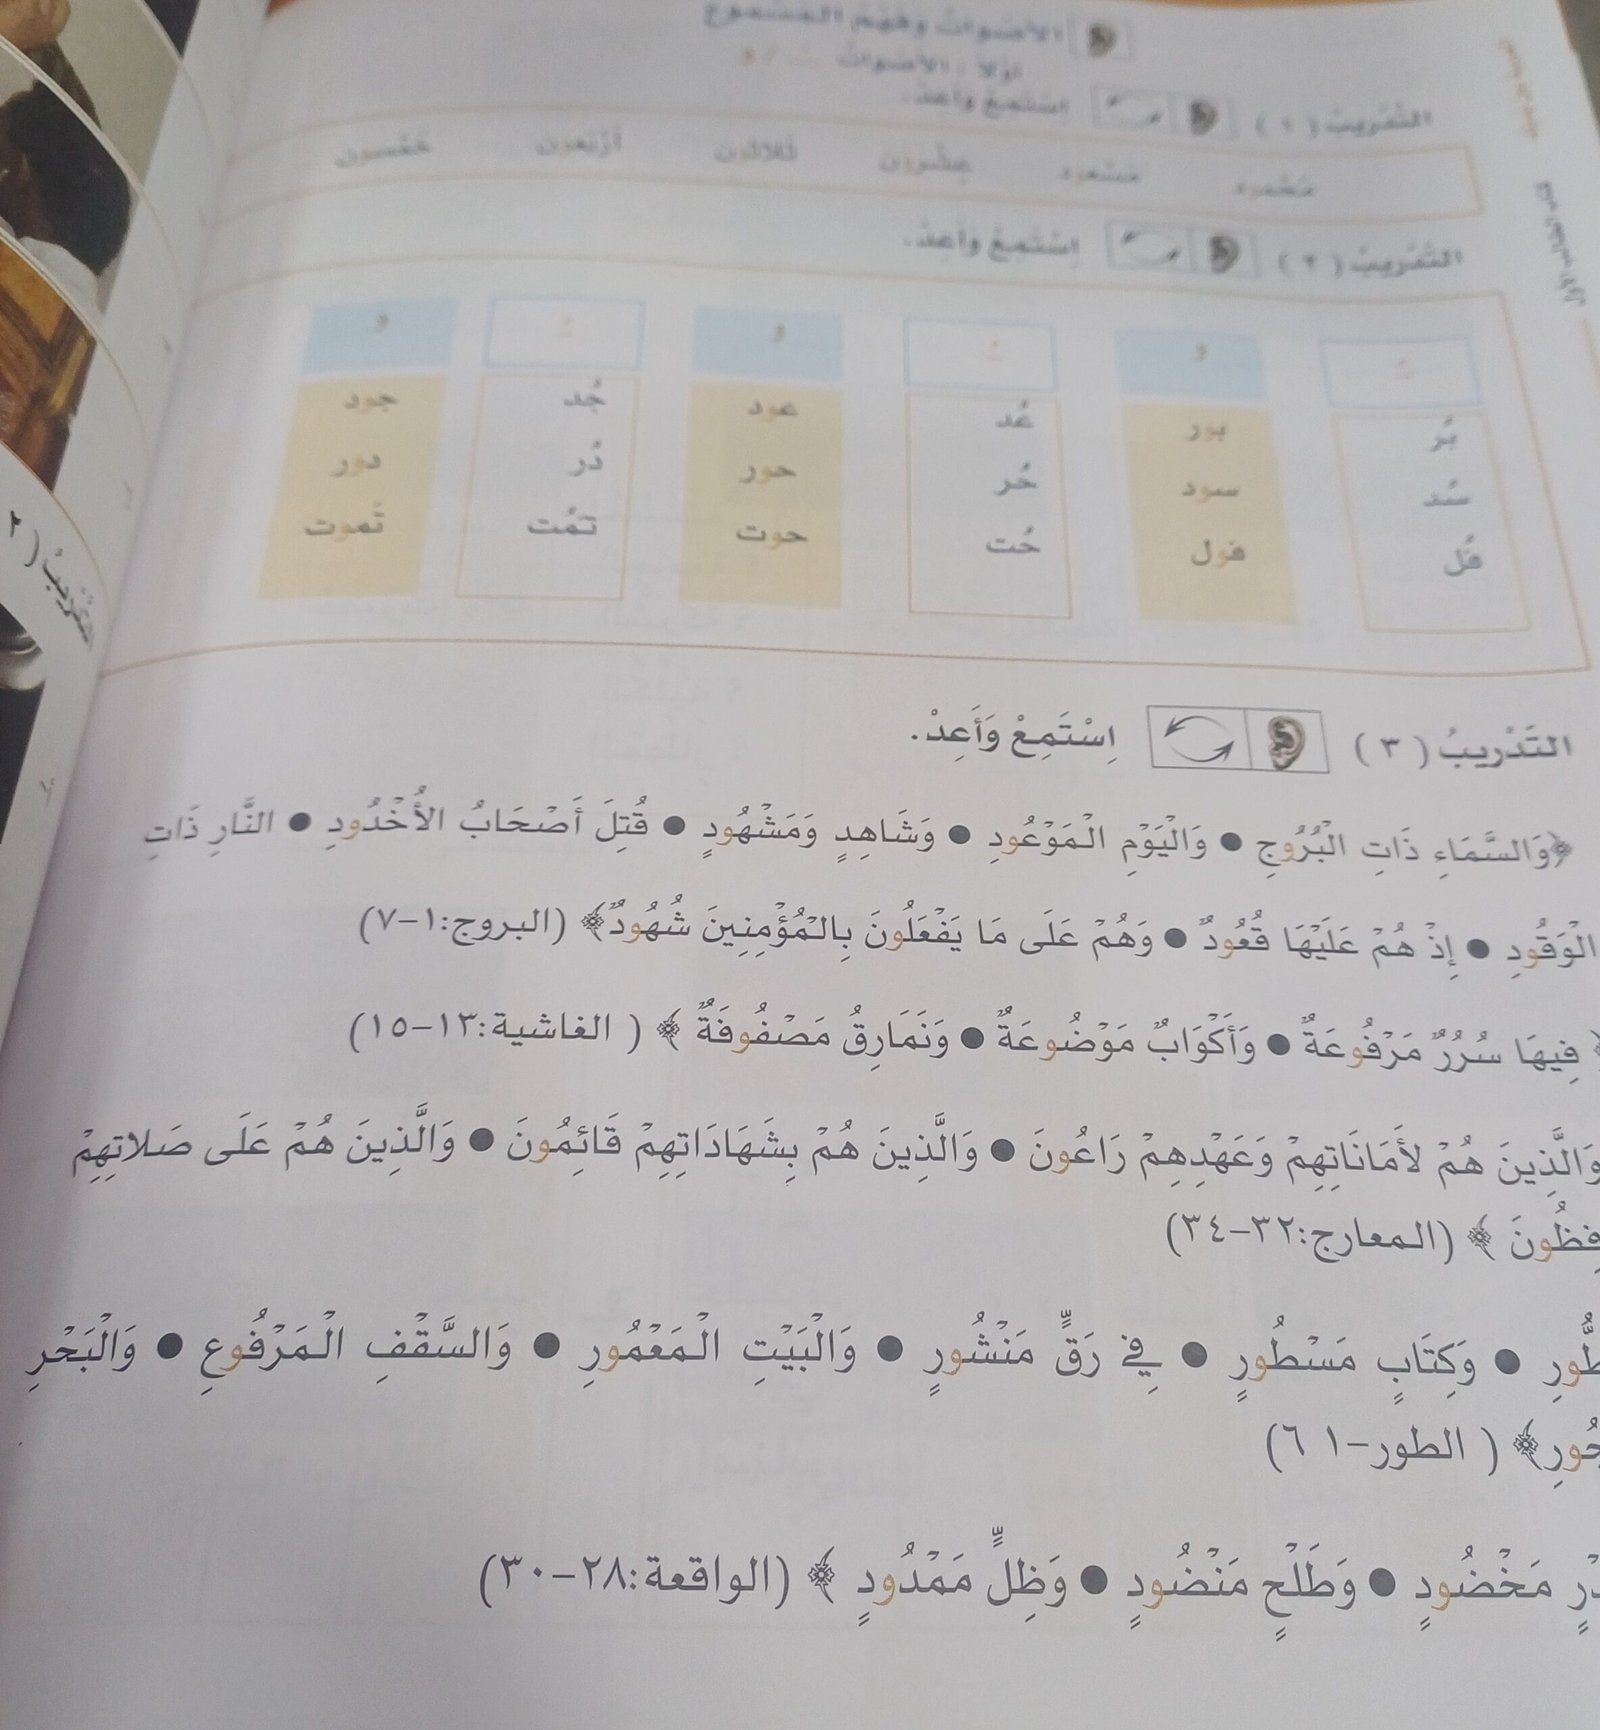 الأصوات وفهم المسموع
أولاً : الأصوات
التَّدْرِيبُ ( ١ ) اِسْتَمِعْ وَأَعِدْ.
عِشْرون ثَلاثون أرْبَعون خَمْسون
التَّدْرِيبُ ( ٢ ) اِسْتَمِعْ وَأَعِدْ.
ـُ و ـُ و ـُ و
بُر بور عُد عود جُد جود
سُد سود حُر حور دُر دور
فُل فول حُت حوت تَمُت تَموت
التَّدْرِيبُ ( ٣ ) اِسْتَمِعْ وَأَعِدْ.
﴿وَالسَّمَاءِ ذَاتِ الْبُرُوجِ ● وَالْيَوْمِ الْمَوْعُودِ ● وَشَاهِدٍ وَمَشْهُودٍ ● قُتِلَ أَصْحَابُ الأُخْدُودِ ● النَّارِ ذَاتِ
الْوَقُودِ ● إِذْ هُمْ عَلَيْهَا قُعُودٌ ● وَهُمْ عَلَى مَا يَفْعَلُونَ بِالْمُؤْمِنِينَ شُهُودٌ﴾ (البروج:١-٧)
﴿ فِيهَا سُرُرٌ مَرْفُوعَةٌ ● وَأَكْوَابٌ مَوْضُوعَةٌ ● وَنَمَارِقُ مَصْفُوفَةٌ ﴾ ( الغاشية:١٣-١٥)
وَالَّذِينَ هُمْ لأَمَانَاتِهِمْ وَعَهْدِهِمْ رَاعُونَ ● وَالَّذِينَ هُمْ بِشَهَادَاتِهِمْ قَائِمُونَ ● وَالَّذِينَ هُمْ عَلَى صَلاتِهِمْ
فِظُونَ ﴾ (المعارج:٣٢-٣٤)
طُّورِ ● وَكِتَابٍ مَسْطُورٍ ● فِي رَقٍّ مَنْشُورٍ ● وَالْبَيْتِ الْمَعْمُورِ ● وَالسَّقْفِ الْمَرْفُوعِ ● وَالْبَحْرِ
جُورِ﴾ ( الطور-١ ٦)
دْرٍ مَخْضُودٍ ● وَطَلْحٍ مَنْضُودٍ ● وَظِلٍّ مَمْدُودٍ ﴾ (الواقعة:٢٨-٣٠)